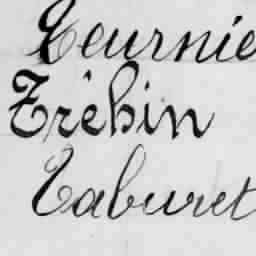 Teurnie
Tréhin
Taburet